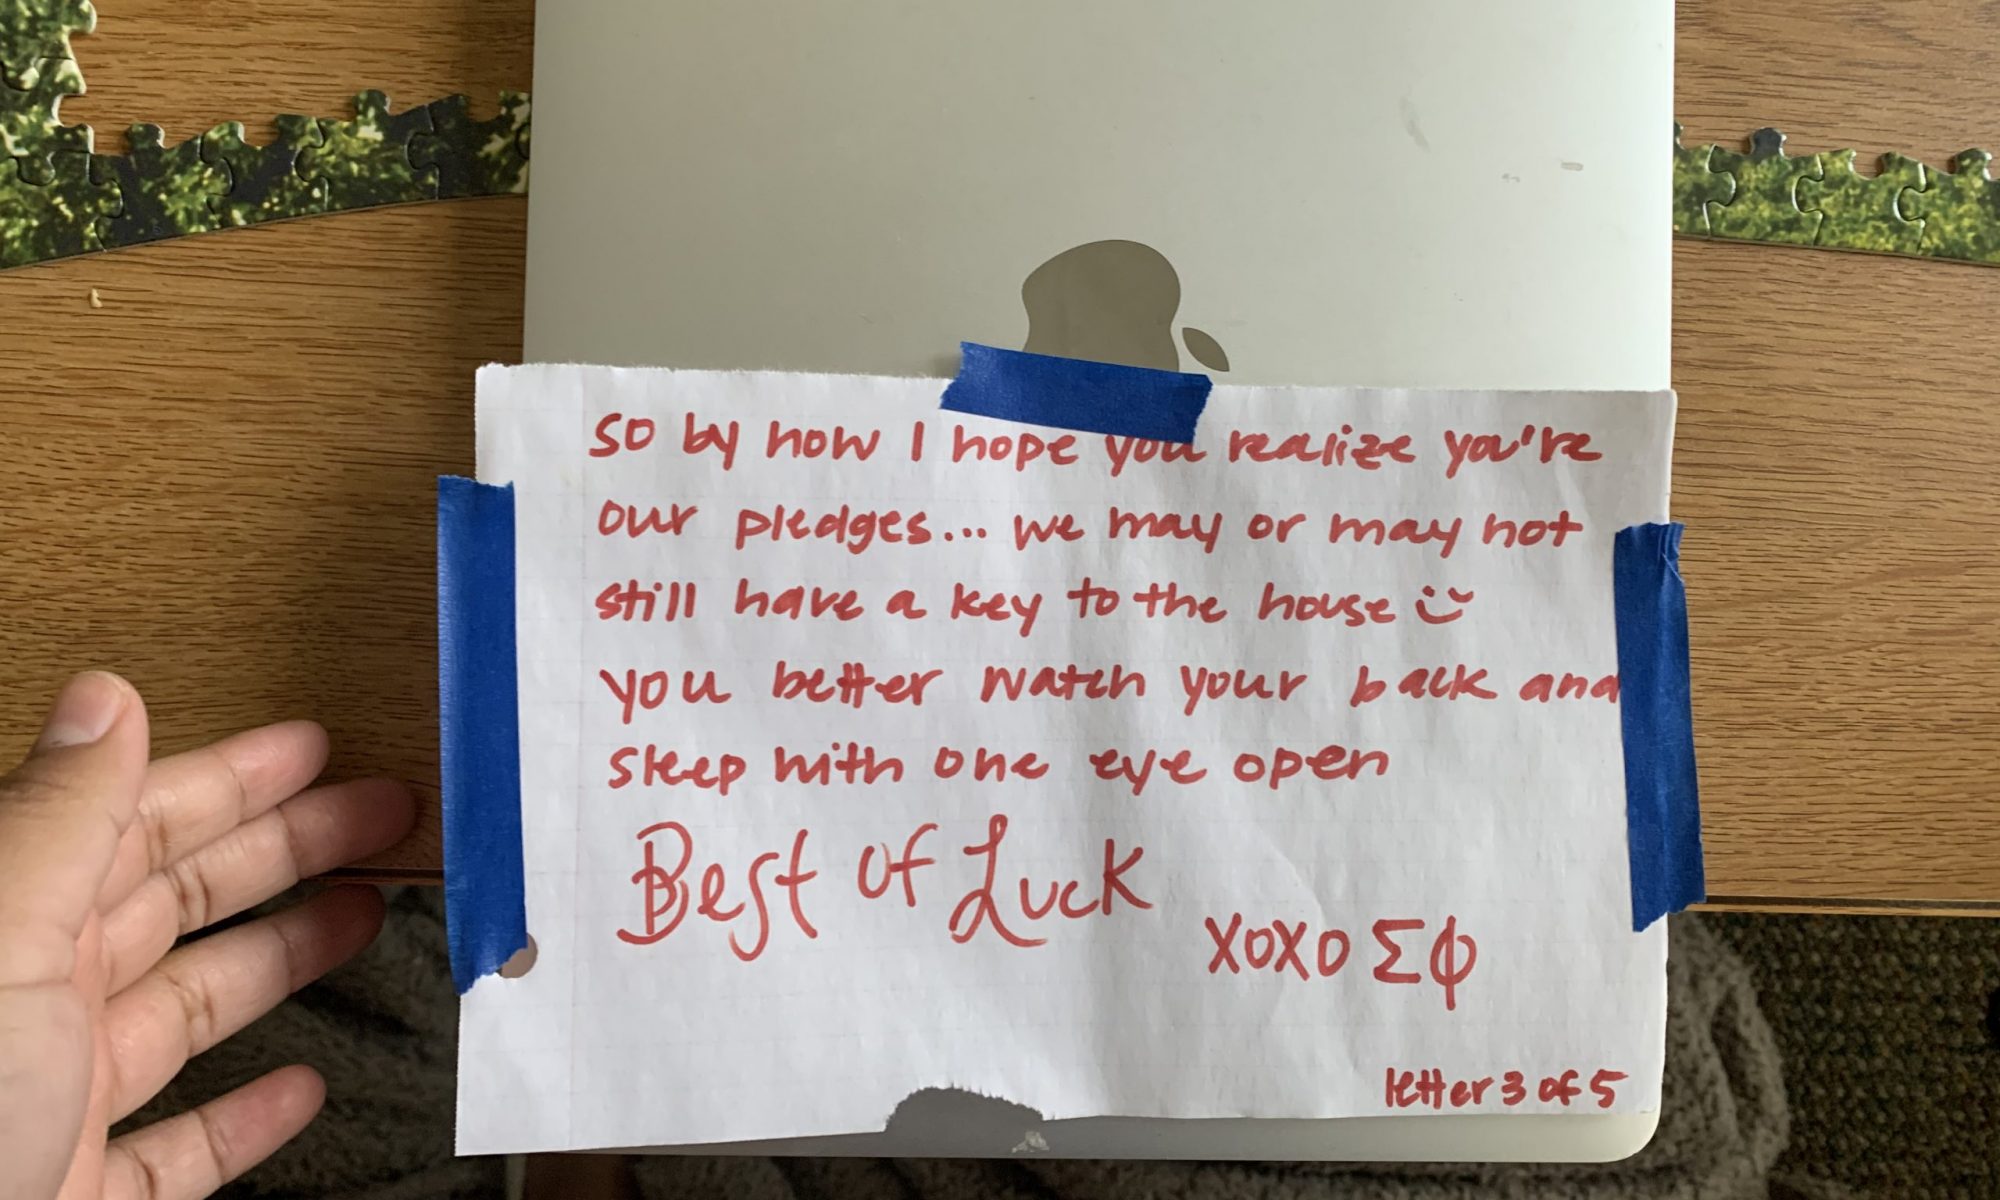 so by now I hope you realize you're
our pledges... we may or may not
still have a key to the house :)
you better watch your back and
sleep with one eye open
Best of Luck
xoxo ΣΦ
letter 3 of 5